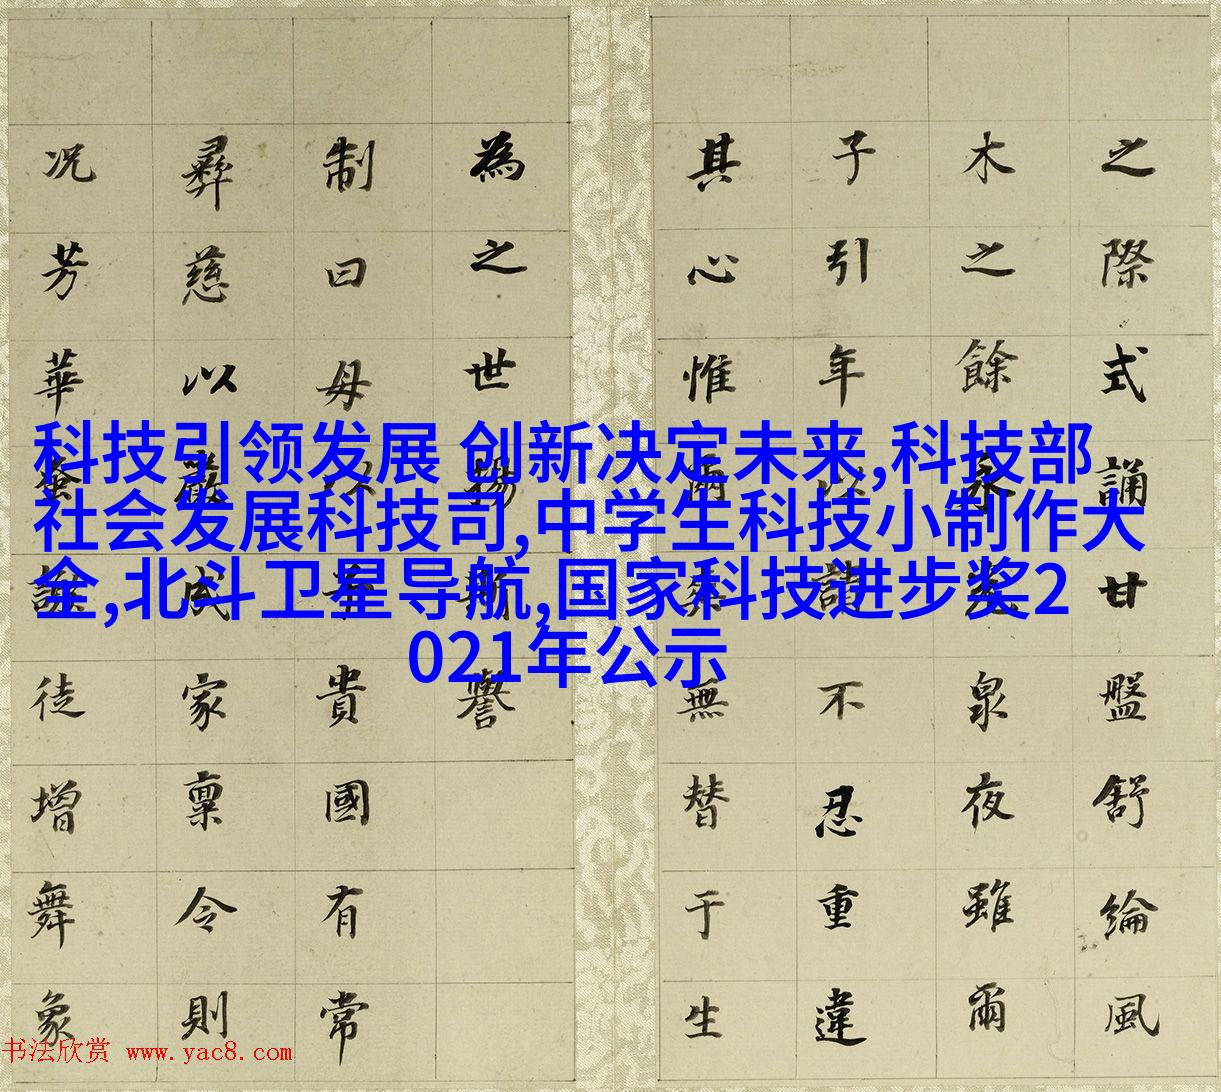 科技引领发展 创新决定未来,科技部
社会发展科技司,中学生科技小制作大
全,北斗卫星导航,国家科技进步奖2
021年公示
之際式誦廿盤舒綸風
木之餘永泉夜雖爾
子引年以請不忍重違
其心惟爾無替于生
為之世揚斯譽
制曰母以子貴國有常
彝慈以嚴成家稟令則
况芳華蚤謝徒增舞象
书法欣赏 www.yac8.com